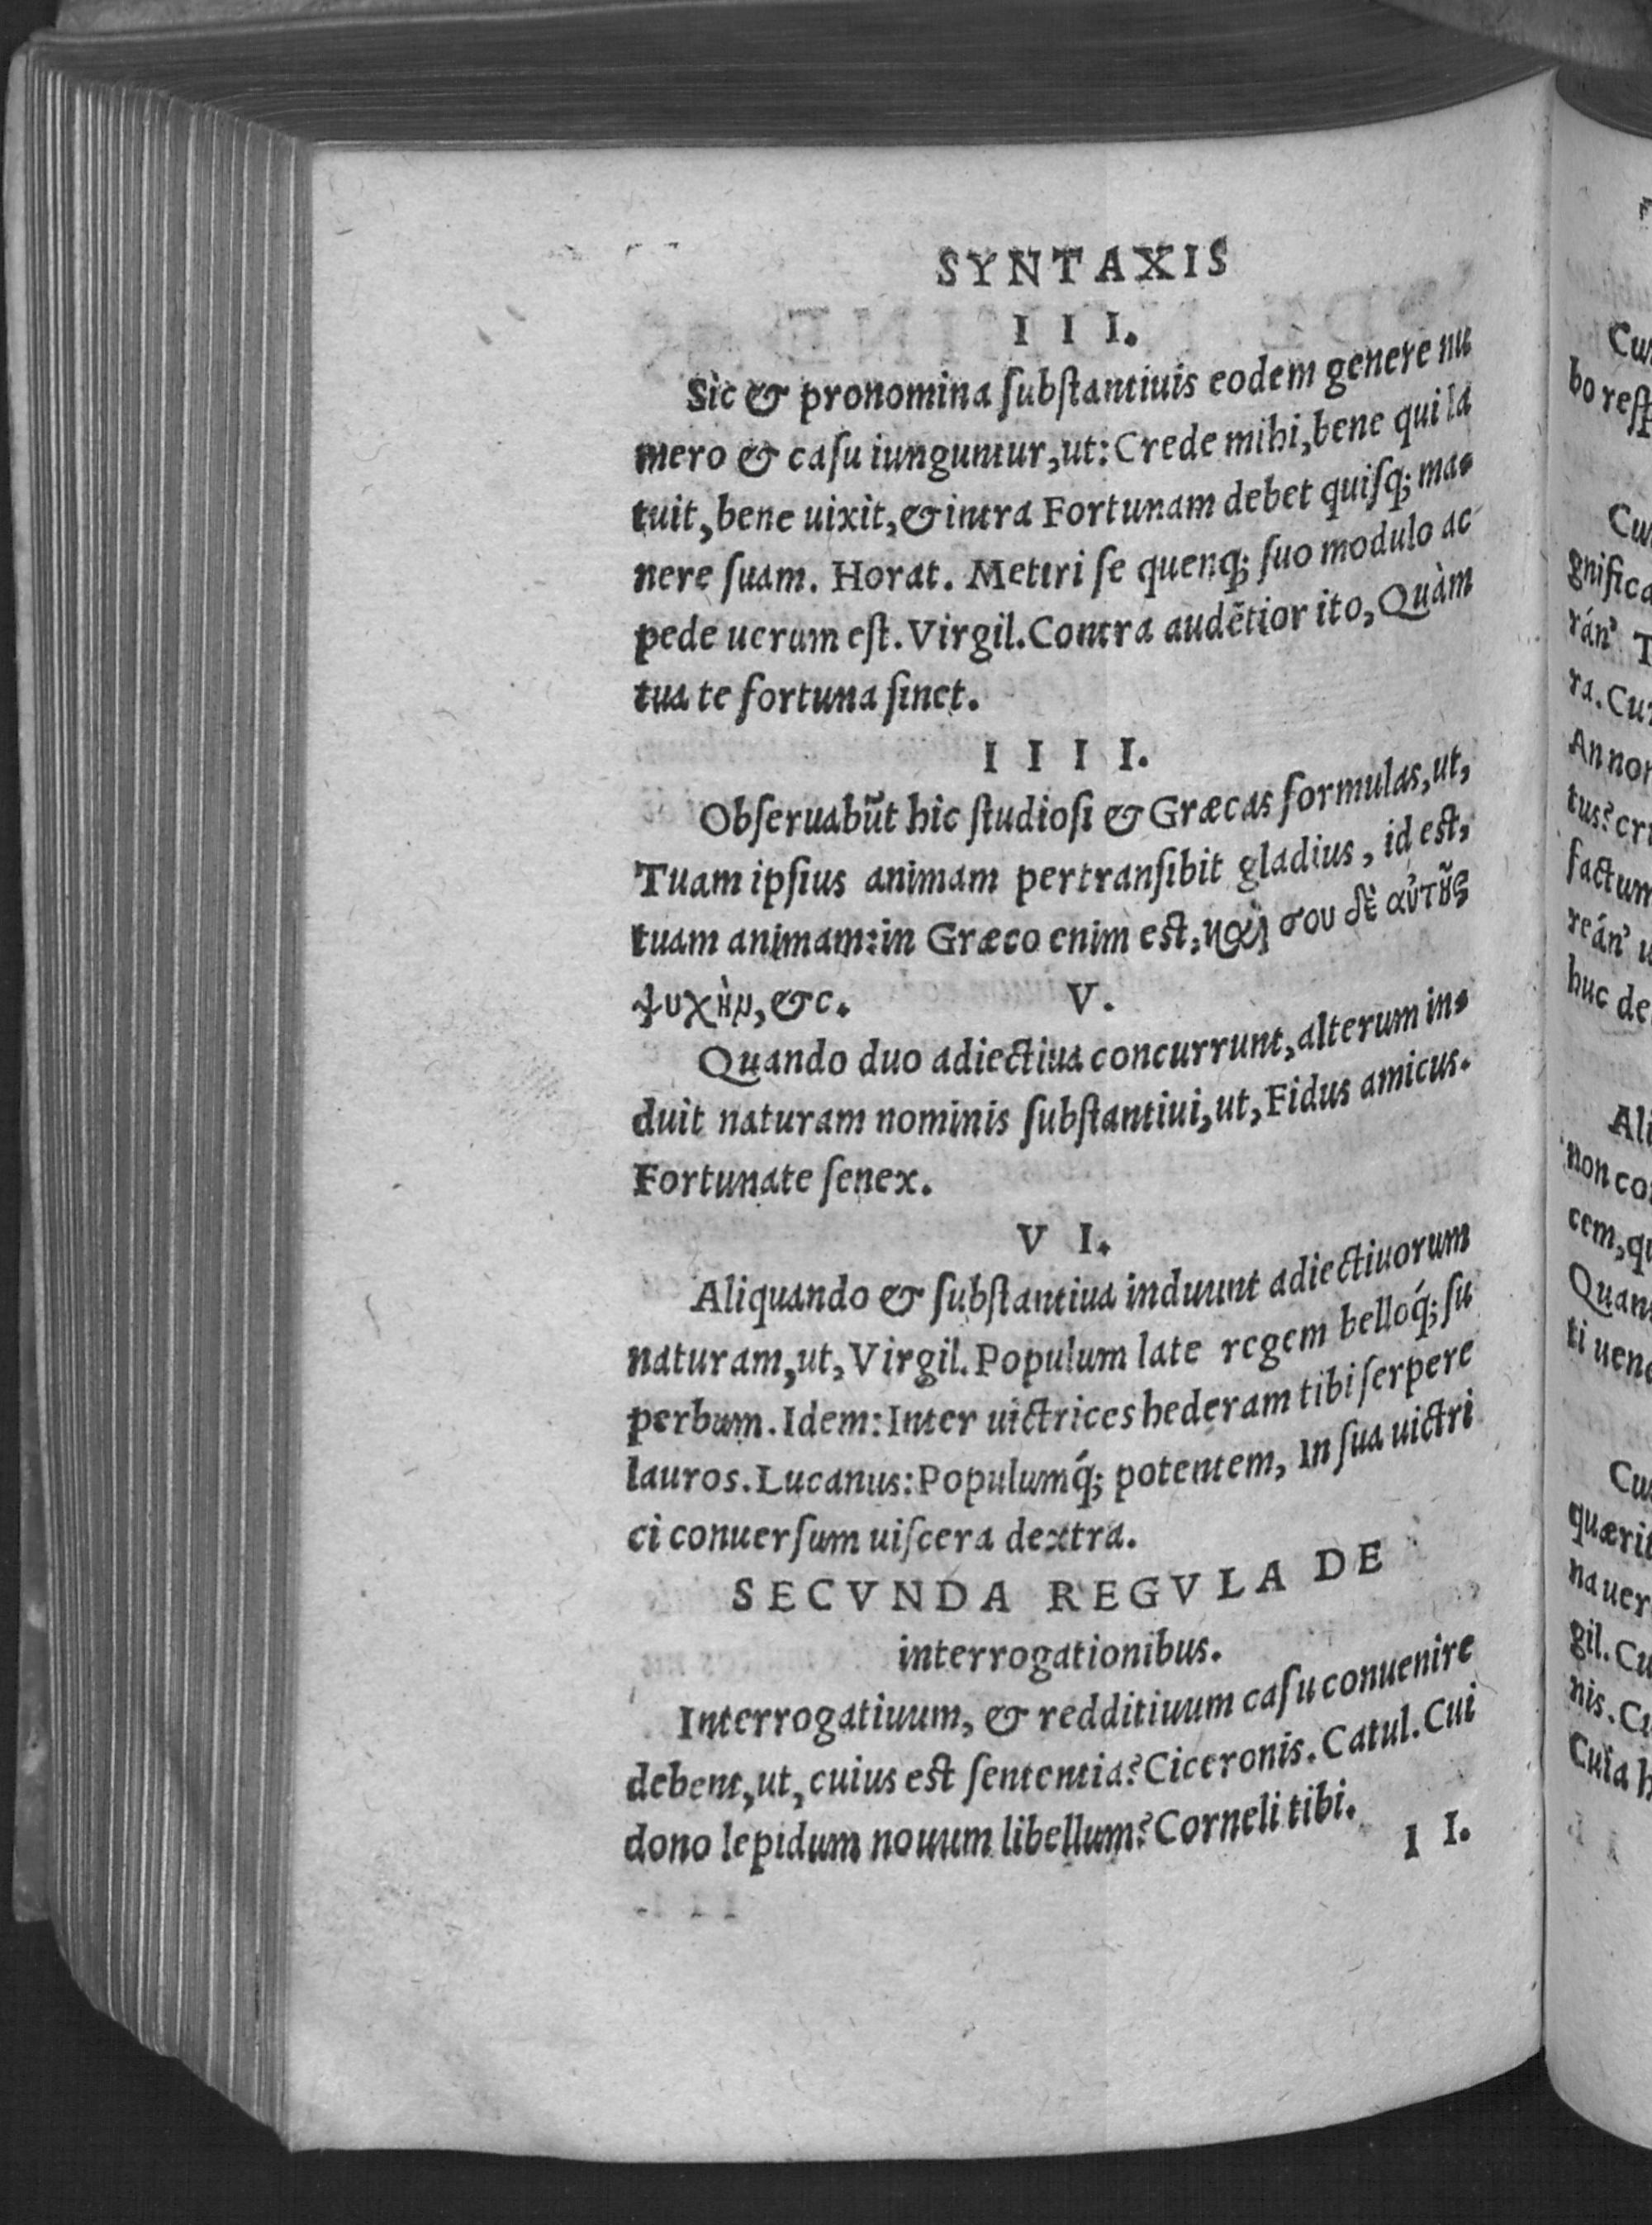 SYNTAXIS
III.
Sic & pronomina ſubſtantiuis eodem genere nu
mero & caſu iunguntur, ut: Crede mihi, bene qui la
tuit, bene uixit, & intra Fortunam debet quiſq; ma-
nere ſuam. Horat. Metiri ſe quenq; ſuo modulo ac
pede uerum eſt. Virgil. Contra audẽtior ito, Quàm
tua te fortuna ſinet.
IIII.
Obſeruabũt hic ſtudioſi & Græcas formulas, ut,
Tuam ipſius animam pertranſibit gladius, id est,
tuam animam: in Græco enim est, καὶ σου δὲ αὐτῆς
ψυχὴν, &c. V.
Quando duo adiectiua concurrunt, alterum in-
duit naturam nominis ſubſtantiui, ut, Fidus amicus.
Fortunate ſenex.
VI.
Aliquando & ſubſtantiua induunt adiectiuorum
naturam, ut, Virgil. Populum late regem belloq́; ſu
perbum. Idem: Inter uictrices hederam tibi ſerpere
lauros. Lucanus: Populumq́; potentem, In ſua uictri
ci conuerſum uiſcera dextra.
SECVNDA REGVLA DE
interrogationibus.
Interrogatiuum, & redditiuum caſu conuenire
debent, ut, cuius est ſententia? Ciceronis. Catul. Cui
dono lepidum nouum libellum? Corneli tibi.
II.
Cum
bo reſp
gnifica
rán' T
An non
tus? cri
factum
huc de
Ali
non co
cem, qu
Quan
ti uene
quærit
na uer
gil. Cu
Cuia h